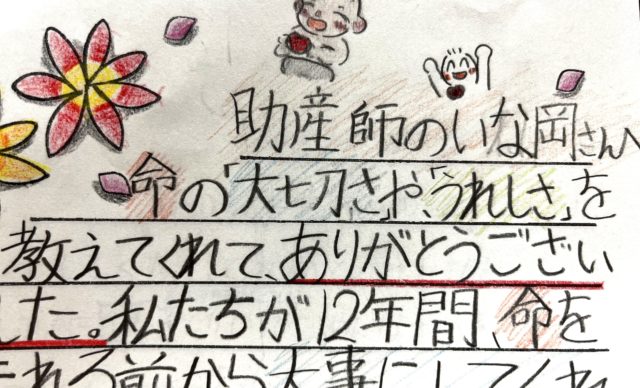 助産師のいな岡さんへ
命の「大切さ」や、「うれしさ」を
教えてくれて、ありがとうござい
した。私たちが12年間、命を
まれる前から大事にしてくれ